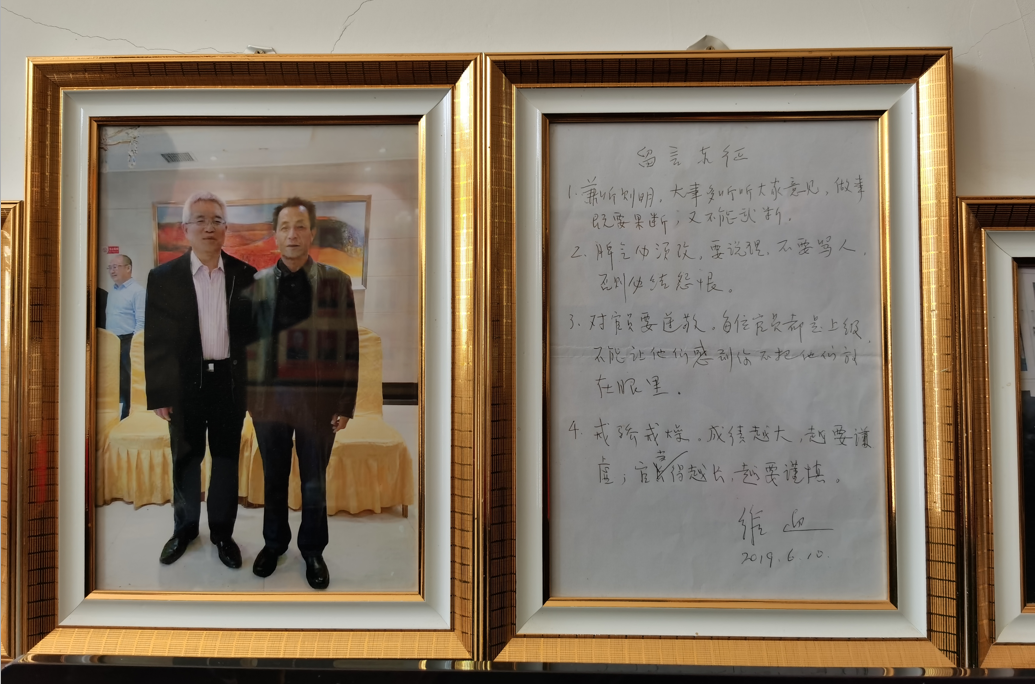 留言东征
1. 兼听则明,大事多听听大家意见,做事
既要果断;又不能武断。
2. 脾气必须改,要说理,不要骂人,
否则必结怨恨。
3. 对官员要尊敬,每位官员都是上级,
不能让他们感到你不把他们放
在眼里。
4. 戒骄戒燥,成绩越大,越要谦
虚;官当得越长,越要谨慎。
维迎
2019.6.10.